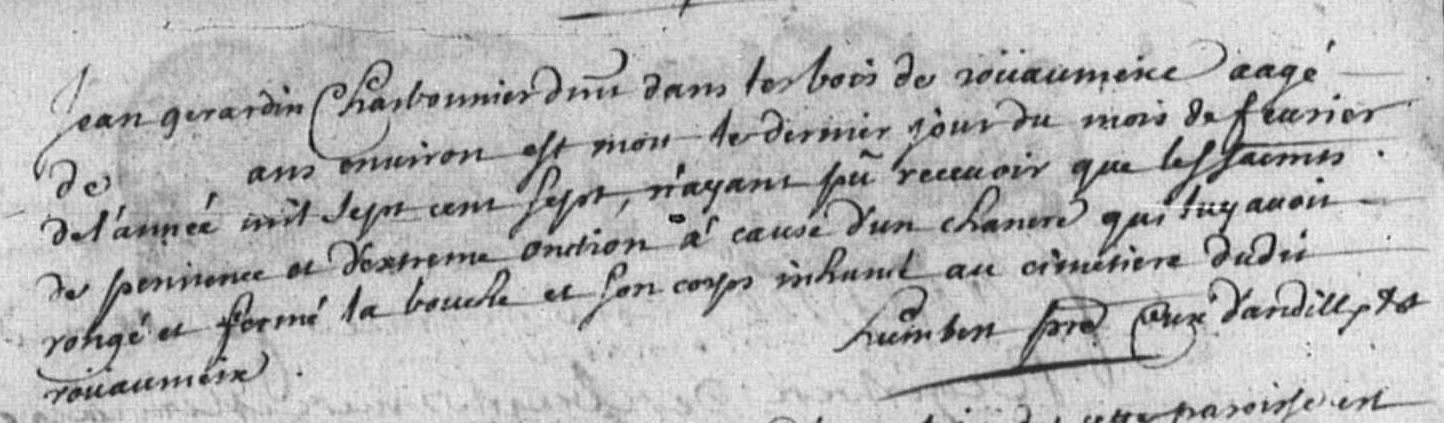 Jean gerardin Charbonnier dans les bois de roüaumeixe aagé
de ans environ est mort le dernier jour du mois de fevrier
de l'année mil sept cent sept, n'ayant pû recevoir que les saemts
de penitence et d'extreme onction à cause d'un chancre qui luy avoit
rongé et fermé la bouche et son corps inhumé au cimetiere dudit
roüaumeix.
humbert pre Curé d'andilly
cette paroisse est